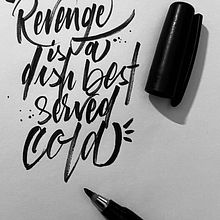 Revenge
is a
dish best
served
cold